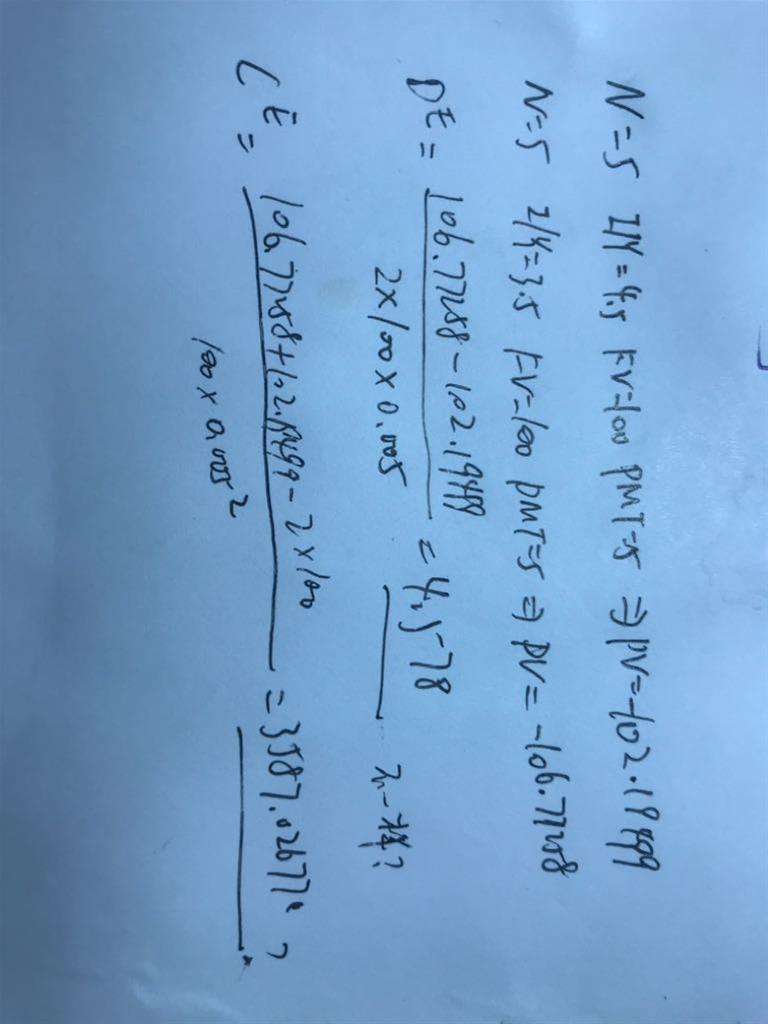 N=5 I/Y=4.5 FV=100 PMT=5 ⇒ PV=-102.19499
N=5 I/Y=3.5 FV=100 PMT=5 ⇒ PV=-106.77258
DE = 106.77258-102.19499
2×100×0.005
= 4.578 不一样?
CE = 106.77258+102.19499-2×100
100×0.005²
=3587.02677 ?